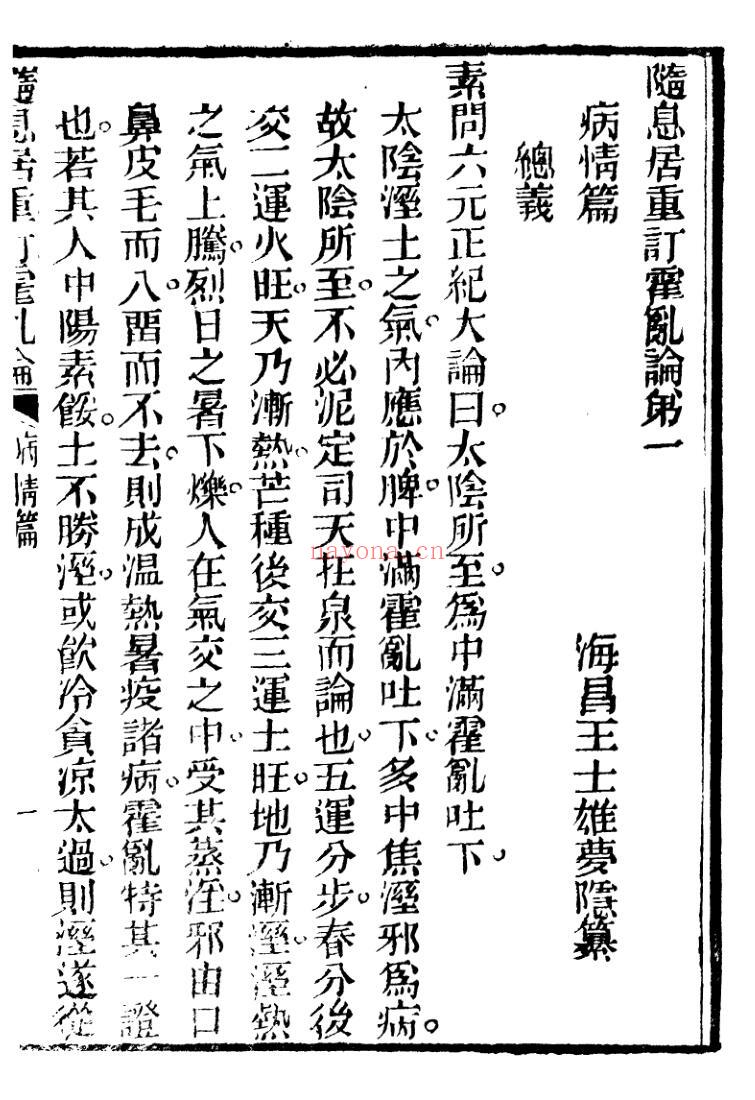 隨息居重訂霍亂論第一
病情篇　海昌王士雄夢隱纂
總義
素問六元正紀大論曰。太陰所至。爲中滿霍亂吐下。
太陰溼土之氣。內應於脾。中滿霍亂吐下。多中焦溼邪爲病。
故太陰所至。不必泥定司天在泉而論也。五運分步。春分後
交二運火旺。天乃漸熱。芒種後交三運土旺。地乃漸溼。溼熱
之氣上騰。烈日之暑下爍。人在氣交之中。受其蒸淫。邪由口
鼻皮毛而入。畱而不去。則成溫熱暑疫諸病。霍亂特其一證
也。若其人中陽素餒。土不勝溼。或飲冷貪凉太過。則溼遂從
隨息居重訂霍亂論　病情篇　一
nayona.cn